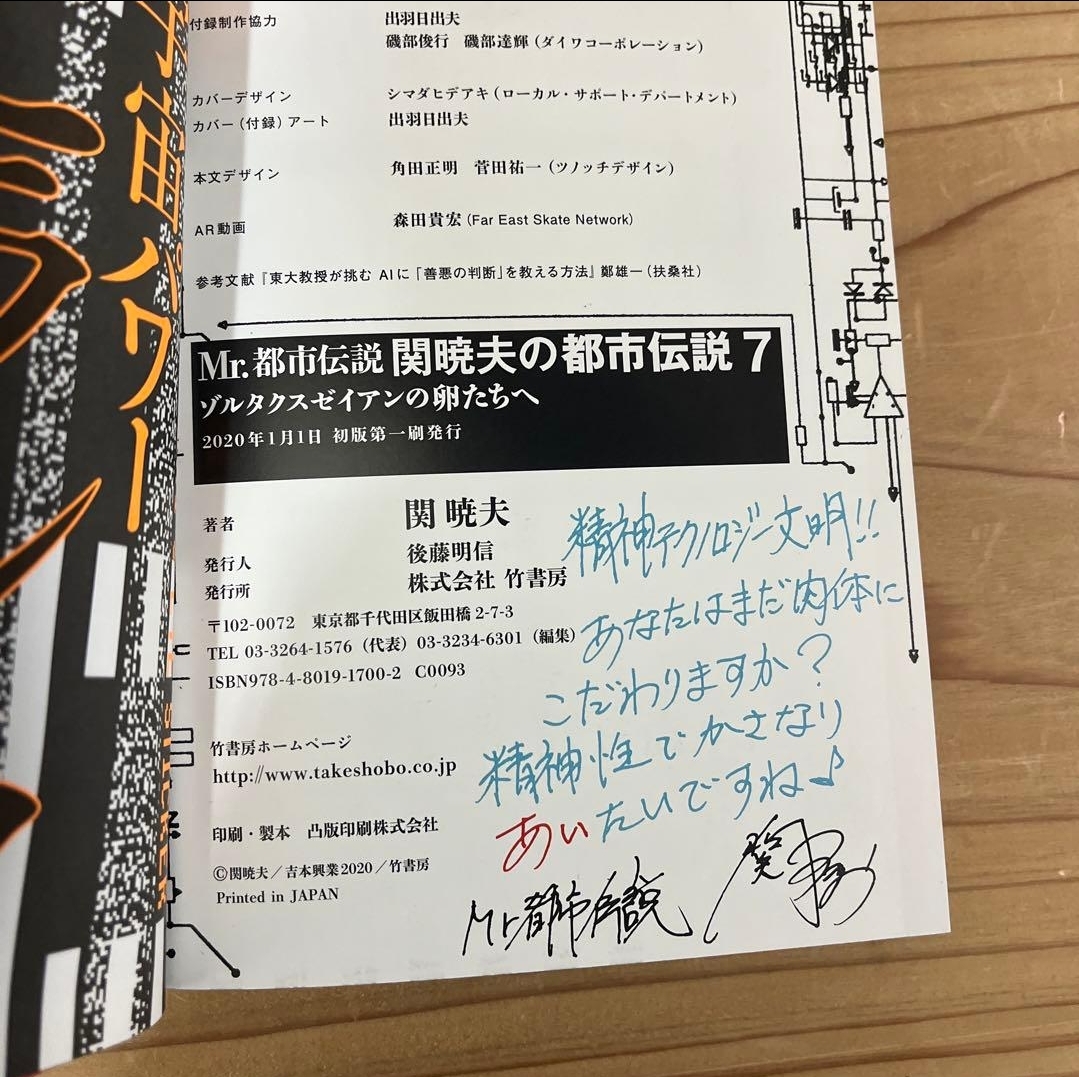 宇宙パワー
付録制作協力 出羽日出夫
磯部俊行 磯部達輝(ダイワコーポレーション)
カバーデザイン シマダヒデアキ(ローカル・サポート・デパートメント)
カバー(付録)アート 出羽日出夫
本文デザイン 角田正明 菅田祐一(ツノッチデザイン)
AR動画 森田貴宏(Far East Skate Network)
参考文献『東大教授が挑む AIに「善悪の判断」を教える方法』鄭雄一(扶桑社)
Mr.都市伝説 関暁夫の都市伝説7
ゾルタクスゼイアンの卵たちへ
2020年1月1日 初版第一刷発行
著者 関 暁夫
発行人 後藤明信
発行所 株式会社 竹書房
〒102-0072 東京都千代田区飯田橋2-7-3
TEL 03-3264-1576(代表)03-3234-6301(編集)
ISBN978-4-8019-1700-2 C0093
竹書房ホームページ
http://www.takeshobo.co.jp
印刷・製本 凸版印刷株式会社
©関暁夫/吉本興業2020/竹書房
Printed in JAPAN
精神テクノロジー文明!!
あなたはまだ肉体に
こだわりますか?
精神性でかさなり
あいたいですね♪
Mr.都市伝説 関暁夫